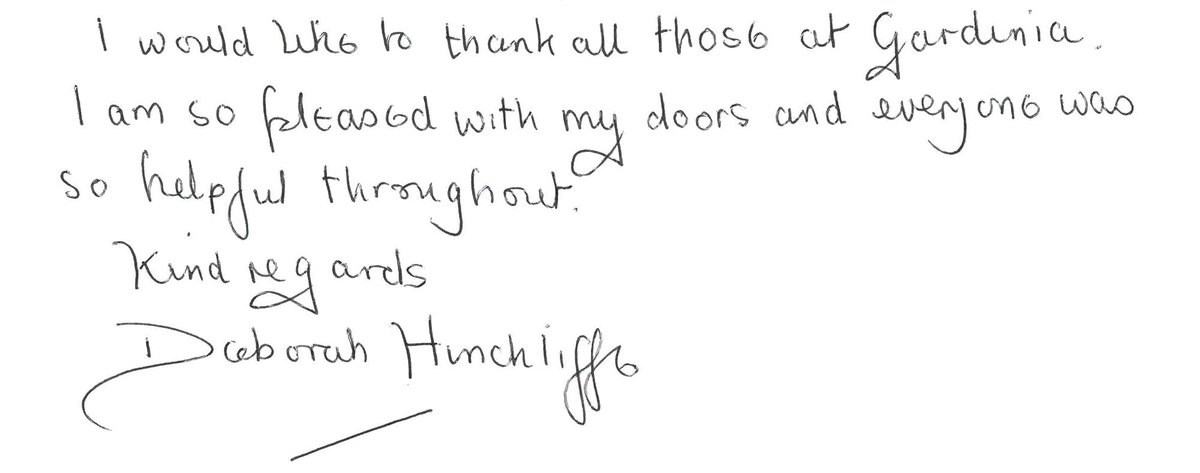 I would like to thank all those at Gardinia.
I am so pleased with my doors and everyone was
so helpful throughout.
Kind regards
Deborah Hinchliffe